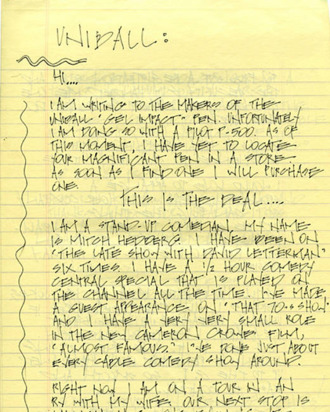 UNIBALL:
HI....
I AM WRITING TO THE MAKERS OF THE
UNIBALL "GEL IMPACT" PEN. UNFORTUNATELY
I AM DOING SO WITH A PILOT P-500. AS OF
THIS MOMENT, I HAVE YET TO LOCATE
YOUR MAGNIFICANT PEN IN A STORE.
AS SOON AS I FIND ONE I WILL PURCHASE
ONE.
THIS IS THE DEAL....
I AM A STAND-UP COMEDIAN. MY NAME
IS MITCH HEDBERG. I HAVE BEEN ON
"THE LATE SHOW WITH DAVID LETTERMAN"
SIX TIMES. I HAVE A 1/2 HOUR COMEDY
CENTRAL SPECIAL THAT IS PLAYED ON
THE CHANNEL ALL THE TIME. I'VE MADE
A GUEST APPEARANCE ON "THAT 70'S SHOW"
AND I HAVE A VERY VERY SMALL ROLE
IN THE NEW CAMERON CROWE FILM,
"ALMOST FAMOUS." I'VE DONE JUST ABOUT
EVERY CABLE COMEDY SHOW AROUND.
RIGHT NOW I AM ON A TOUR IN AN
RV WITH MY WIFE. OUR NEXT STOP IS